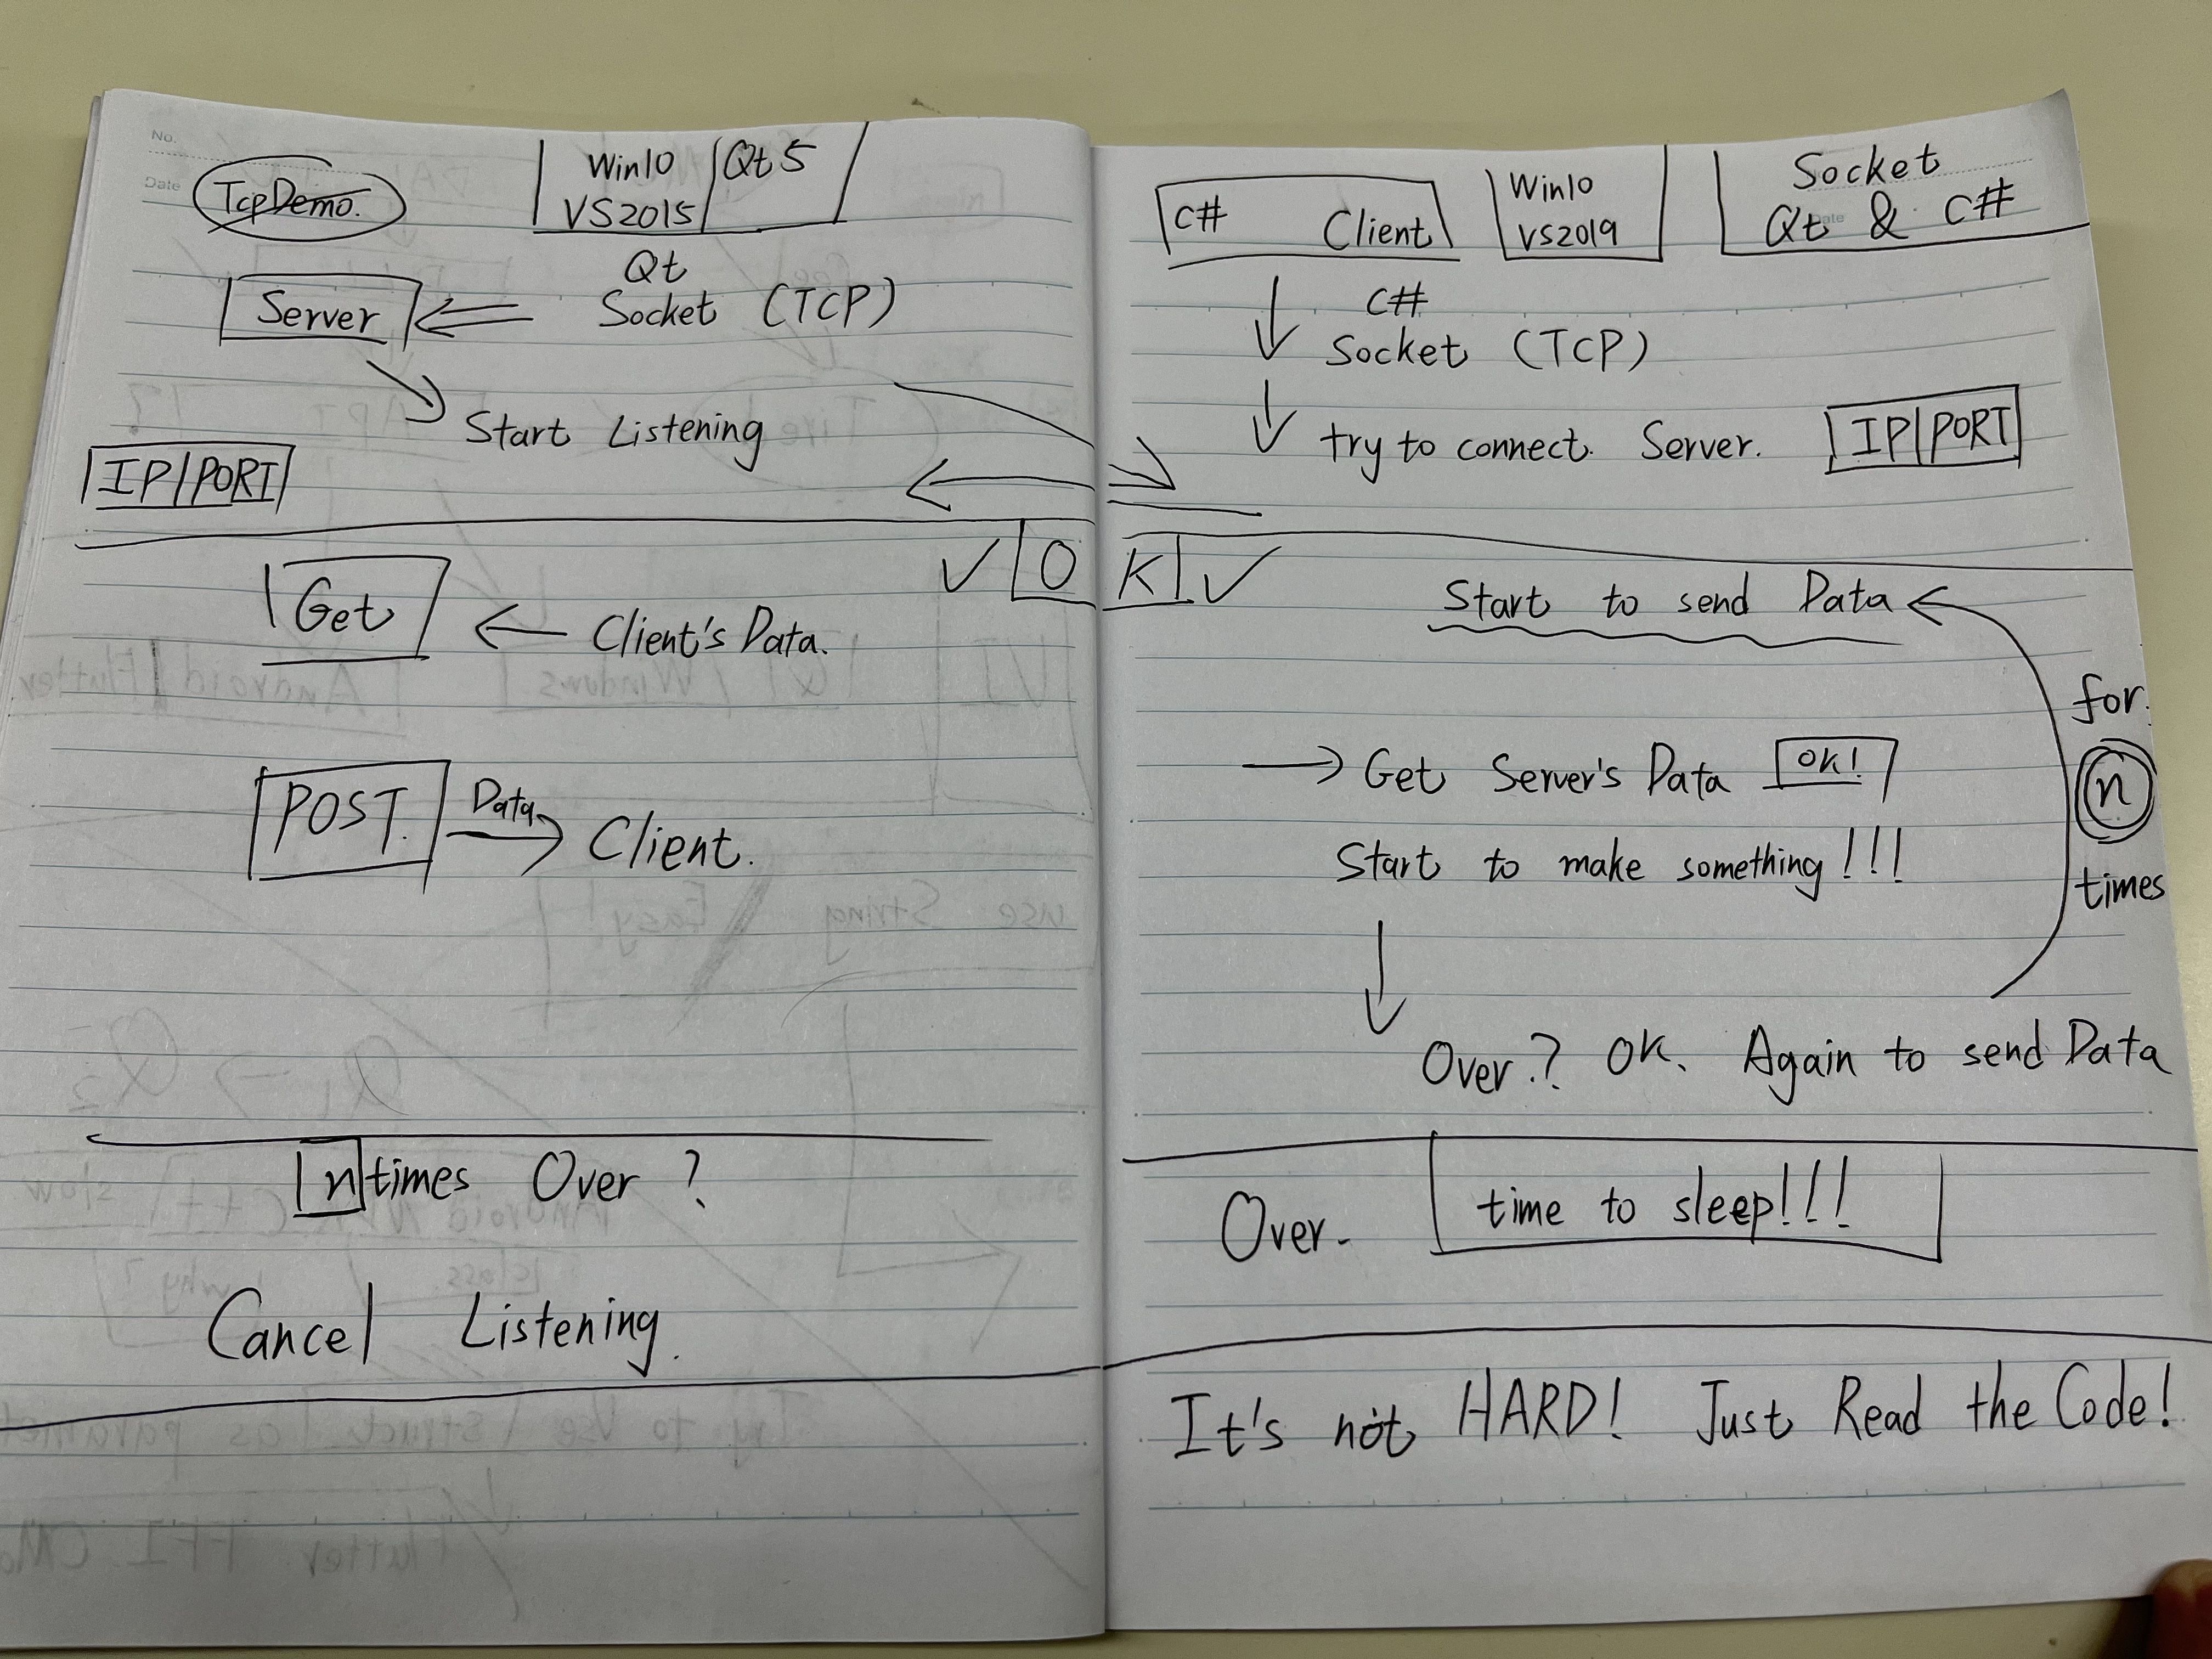 No.
Date
TcpDemo.
Win10 | Qt 5
VS2015
Qt
Server
Socket (TCP)
Start Listening
IP | PORT
Get
Client's Data.
POST.
Data
Client.
n times Over ?
Cancel Listening.
Socket
Qt & C#
Date
C# Client
Win10
VS2019
C#
Socket (TCP)
try to connect. Server.
IP | PORT
OK
Start to send Data
for.
n
times
Get Server's Data OK!
Start to make something!!!
Over? OK. Again to send Data
Over.
time to sleep!!!
It's not HARD! Just Read the Code!